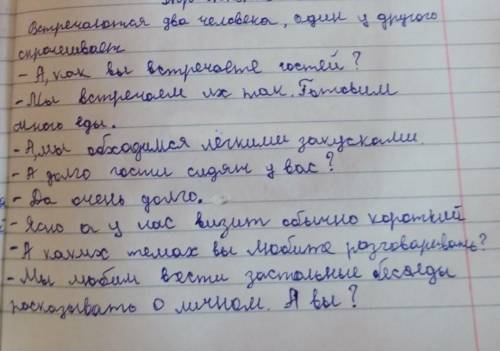 Встречаются два человека, один у другого
спрашивает
- А, как вы встречаете гостей?
- Мы встречаем их так. Готовим
много еды.
- А, мы обходимся лёгкими закусками.
- А долго гости сидят у вас?
- Да очень долго.
- Ясно а у нас визит обычно короткий
- А каких темах вы любите разговаривать?
- Мы любим вести застольные беседы
расказывать о личном. А вы?